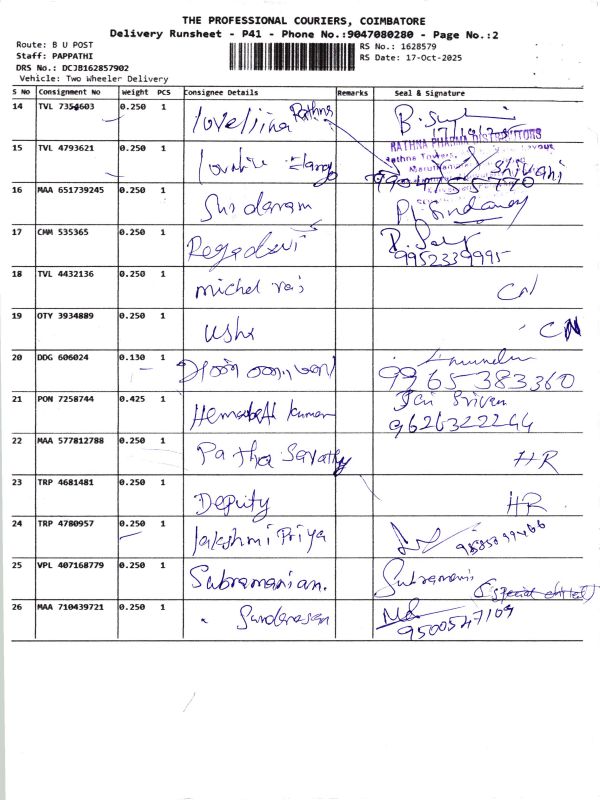 THE PROFESSIONAL COURIERS, COIMBATORE
Delivery Runsheet - P41 - Phone No.:9047080280 - Page No.:2
Route: B U POST
Staff: PAPPATHI
DRS No.: DCJB162857902
Vehicle: Two Wheeler Delivery
RS No.: 1628579
RS Date: 17-Oct-2025
S No Consignment No Weight PCS Consignee Details Remarks Seal & Signature
14 TVL 7354603 0.250 1 Rathna
RATHNA PHARMA DISTRIBUTORS
Rathna Towers,
15 TVL 4793621 0.250 1 Shivani
16 MAA 651739245 0.250 1 Sundaram
17 CMM 535365 0.250 1
9952339995
18 TVL 4432136 0.250 1 michel raj CN
19 OTY 3934889 0.250 1 Usha CN
20 DDG 606024 0.130 1
9965383360
21 PON 7258744 0.425 1 kumar Jai Sriram
9626322244
22 MAA 577812788 0.250 1 Partha Sarathy HR
23 TRP 4681481 0.250 1 Deputy HR
24 TRP 4780957 0.250 1 lakshmi Priya
25 VPL 407168779 0.250 1 Subramanian.
26 MAA 710439721 0.250 1
9500547109